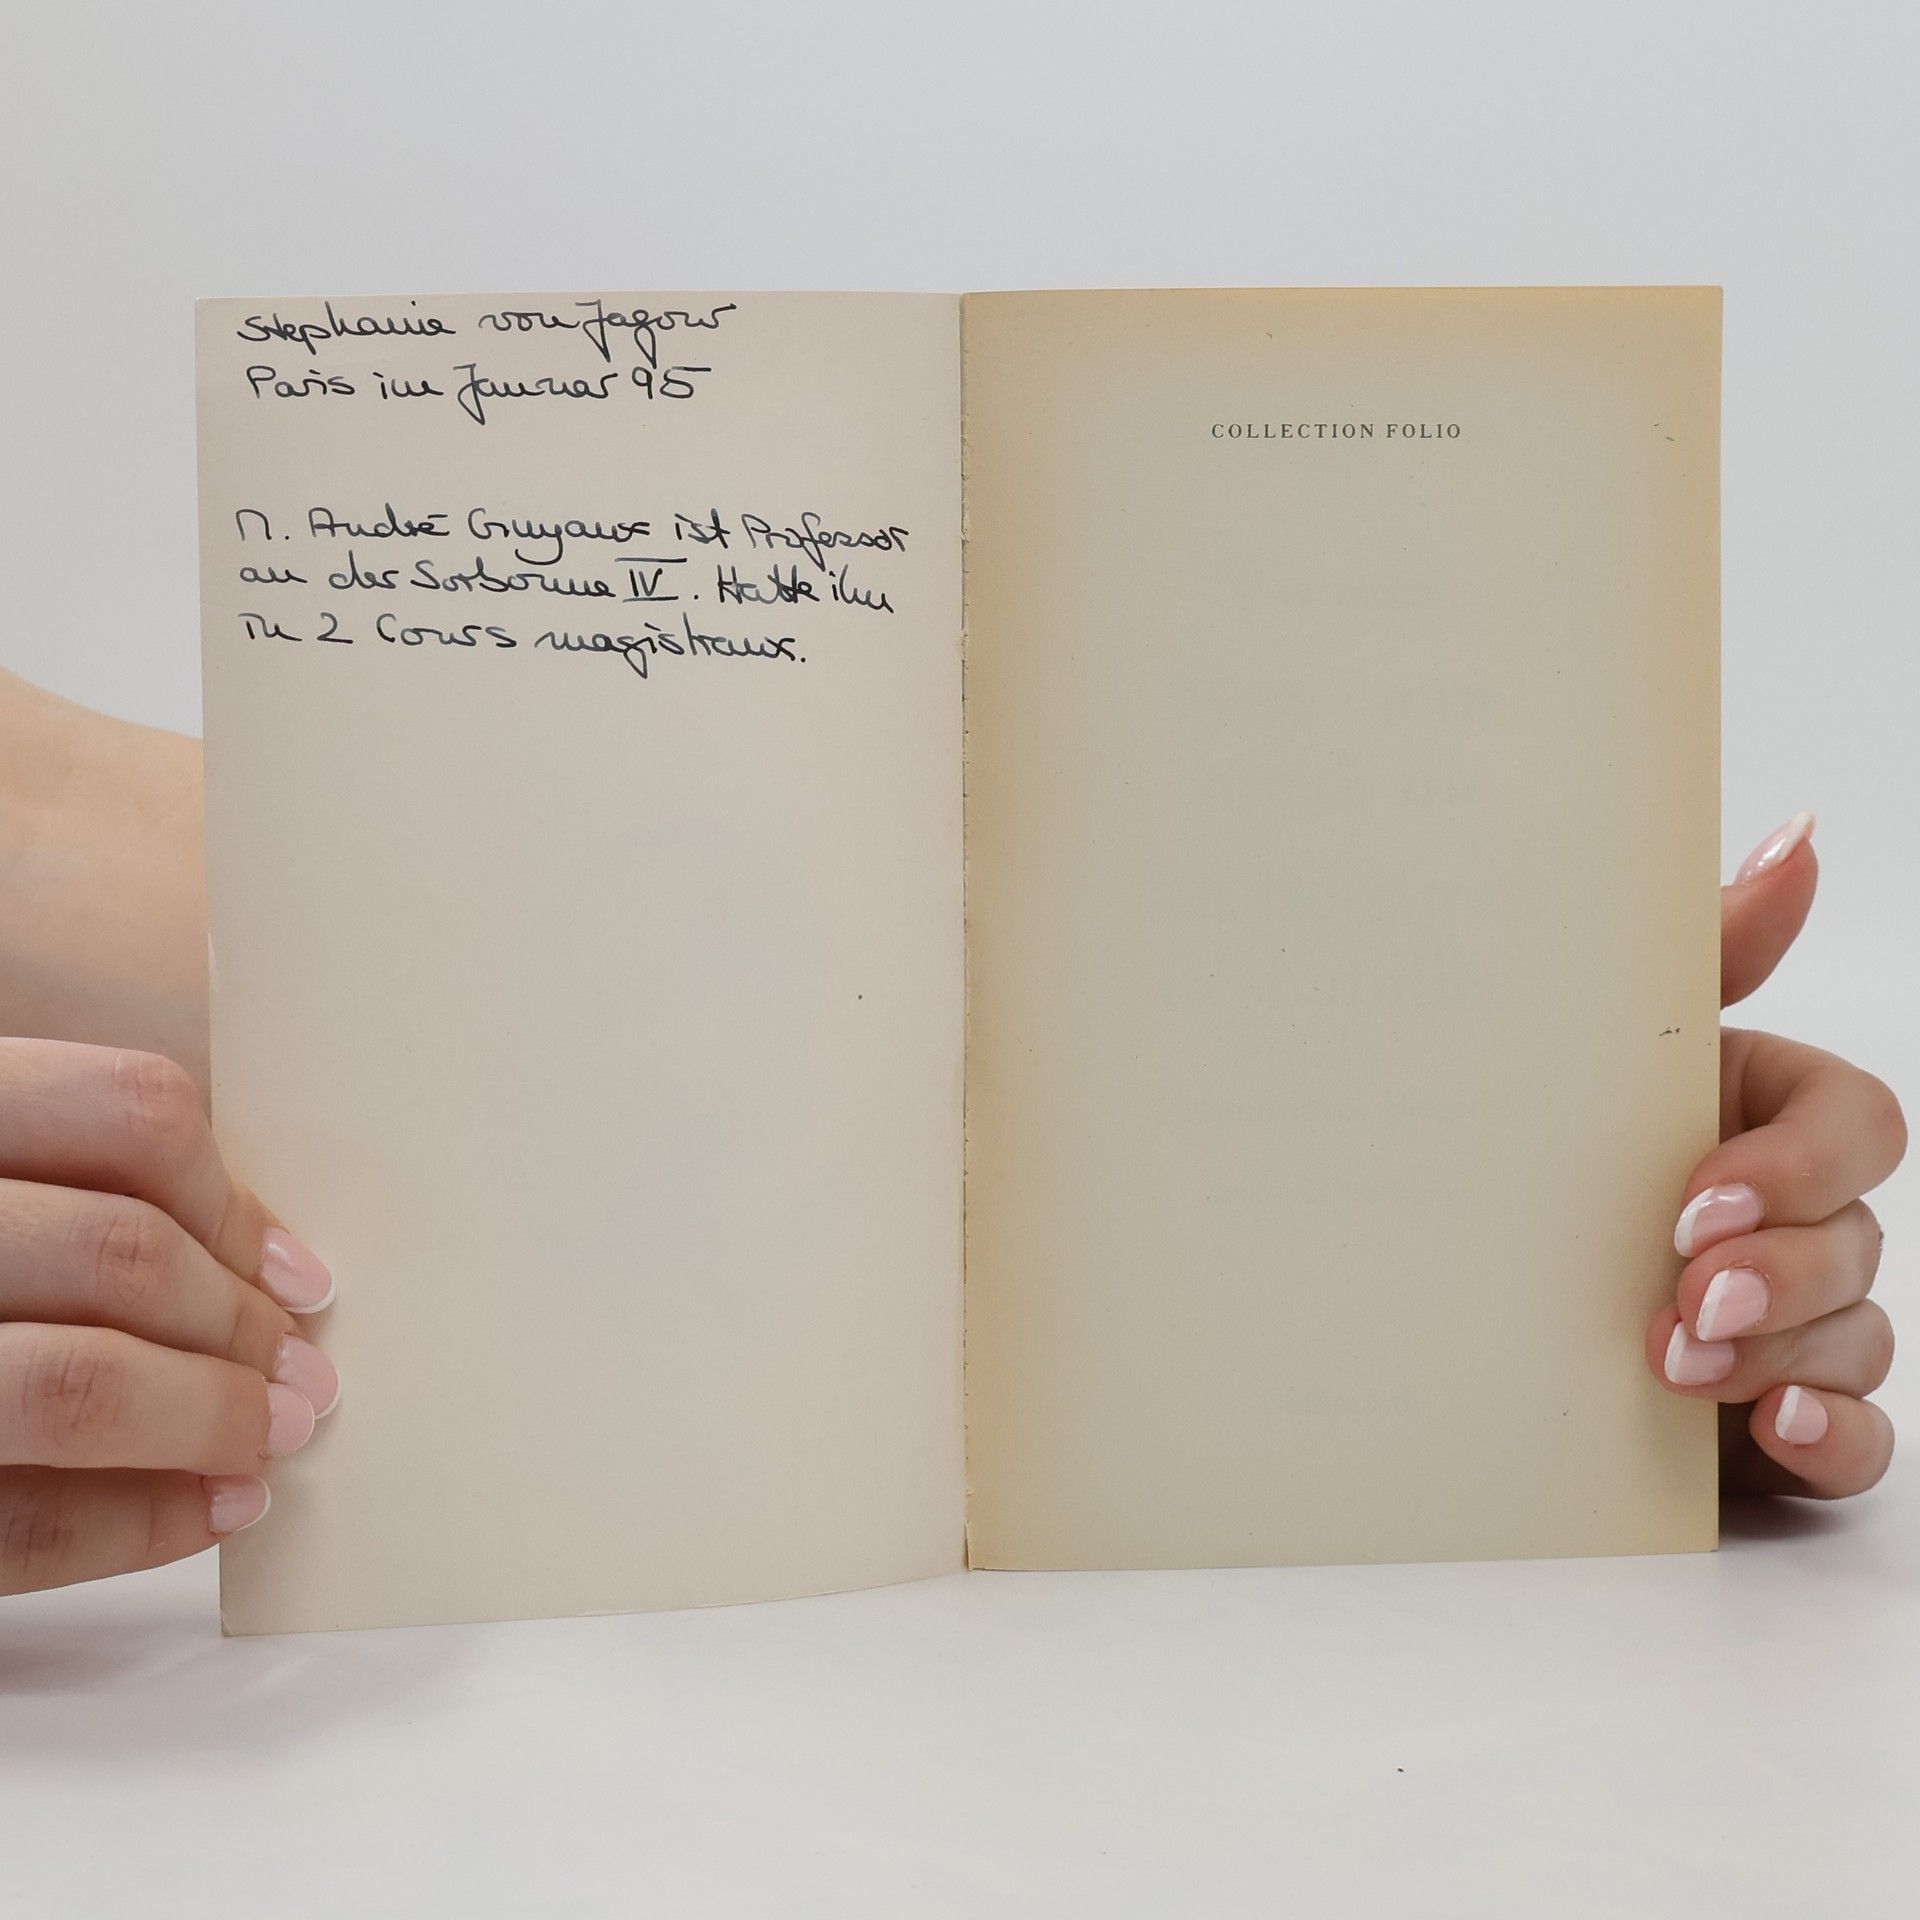 Stephanie von Jagow
Paris im Januar 95
M. André Guyaux ist Professor
an der Sorbonne IV. Hatte ihn
in 2 Cours magistraux.
COLLECTION FOLIO